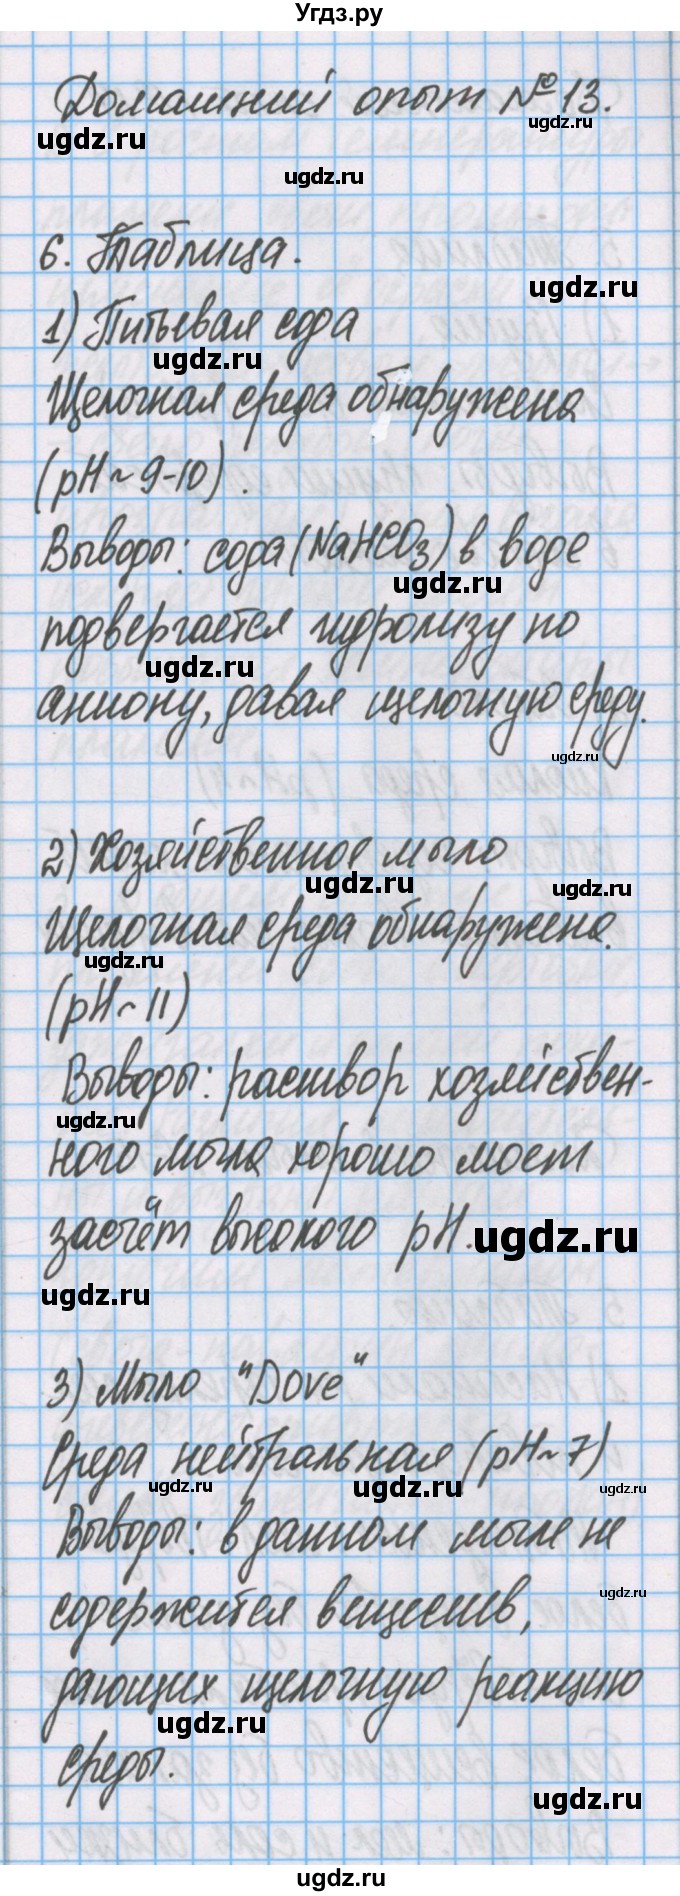 Угдз.ру
Домашний опыт №13.
ugdz.ru
ugdz.ru
ugdz.ru
6. Таблица.
ugdz.ru
1) Питьевая сода
ugdz.ru
Щелочная среда обнаружена
(pH~9-10).
Выводы: сода (NaHCO3) в воде
ugdz.ru
подвергается гидролизу по
ugdz.ru
аниону, давая щелочную среду.
ugdz.ru
2) Хозяйственное мыло
ugdz.ru
ugdz.ru
Щелочная среда обнаружена.
ugdz.ru
(pH~11)
Выводы: раствор хозяйствен-
ugdz.ru
ного мыла хорошо моет
засчёт высокого pH.
ugdz.ru
ugdz.ru
3) Мыло "Dove"
Среда нейтральная (pH~7)
ugdz.ru
ugdz.ru
ugdz.ru
Выводы: в данном мыле не
ugdz.ru
содержится веществ,
дающих щелочную реакцию
ugdz.ru
среды.
ugdz.ru
ugdz.ru